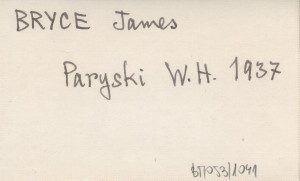 BRYCE James
Paryski W.H. 1937
BJ/053/1041